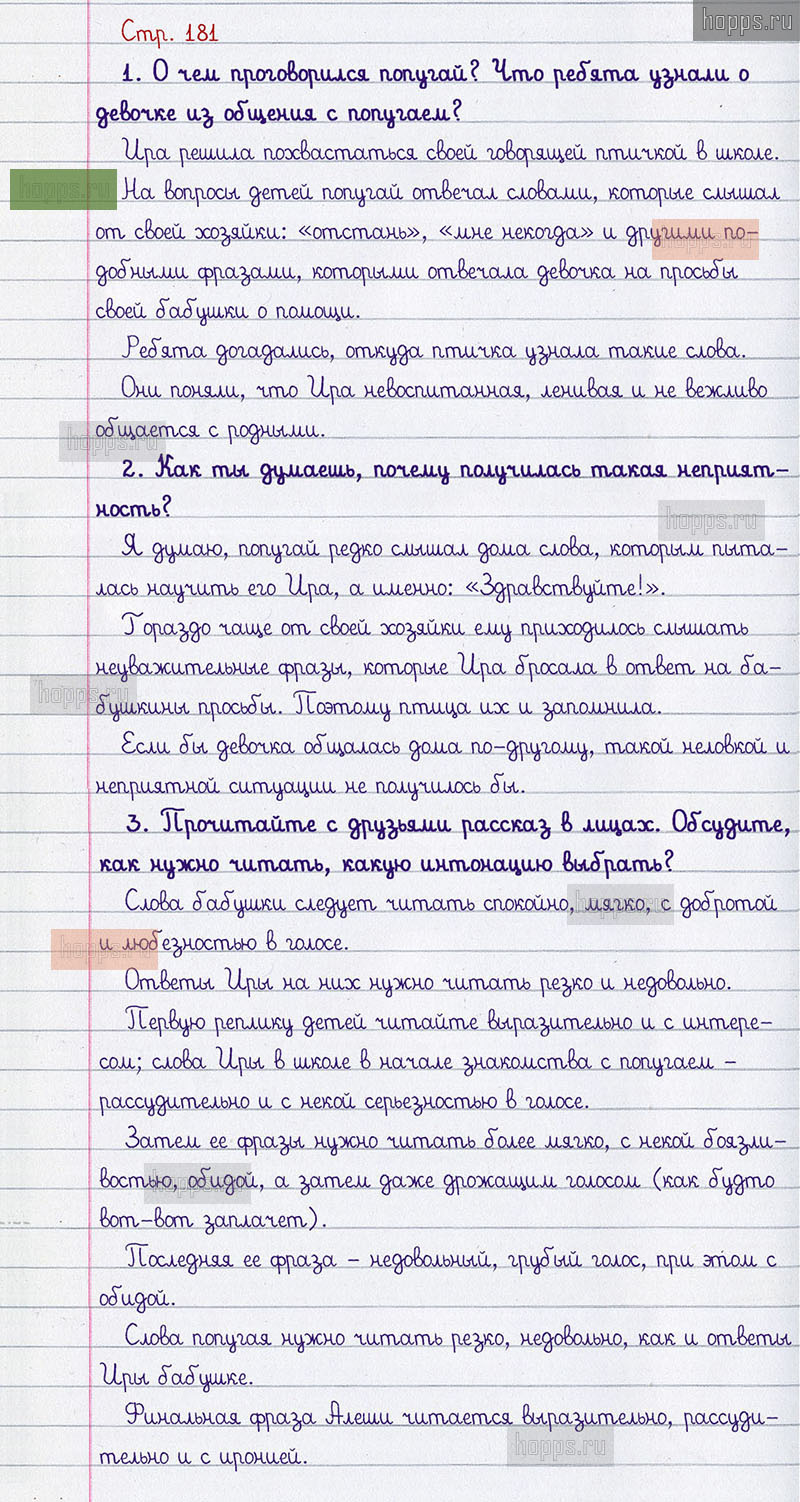 hopps.ru
Стр. 181
1. О чем проговорился попугай? Что ребята узнали о
девочке из общения с попугаем?
Ира решила похвастаться своей говорящей птичкой в школе.
hopps.ru
На вопросы детей попугай отвечал словами, которые слышал
от своей хозяйки: «отстань», «мне некогда» и другими по-
hopps.ru
добными фразами, которыми отвечала девочка на просьбы
своей бабушки о помощи.
Ребята догадались, откуда птичка узнала такие слова.
Они поняли, что Ира невоспитанная, ленивая и не вежливо
общается с родными.
hopps.ru
2. Как ты думаешь, почему получилась такая неприят-
ность?
hopps.ru
Я думаю, попугай редко слышал дома слова, которым пыта-
лась научить его Ира, а именно: «Здравствуйте!».
Гораздо чаще от своей хозяйки ему приходилось слышать
неуважительные фразы, которые Ира бросала в ответ на ба-
hopps.ru
бушкины просьбы. Поэтому птица их и запомнила.
Если бы девочка общалась дома по-другому, такой неловкой и
неприятной ситуации не получилось бы.
3. Прочитайте с друзьями рассказ в лицах. Обсудите,
как нужно читать, какую интонацию выбрать?
Слова бабушки следует читать спокойно, мягко, с добротой
hopps.ru
и любезностью в голосе.
hopps.ru
Ответы Иры на них нужно читать резко и недовольно.
Первую реплику детей читайте выразительно и с интере-
сом; слова Иры в школе в начале знакомства с попугаем –
рассудительно и с некой серьезностью в голосе.
Затем ее фразы нужно читать более мягко, с некой боязли-
востью, обидой, а затем даже дрожащим голосом (как будто
hopps.ru
вот-вот заплачет).
Последняя ее фраза – недовольный, грубый голос, при этом с
обидой.
Слова попугая нужно читать резко, недовольно, как и ответы
Иры бабушке.
Финальная фраза Алеши читается выразительно, рассуди-
тельно и с иронией.
hopps.ru